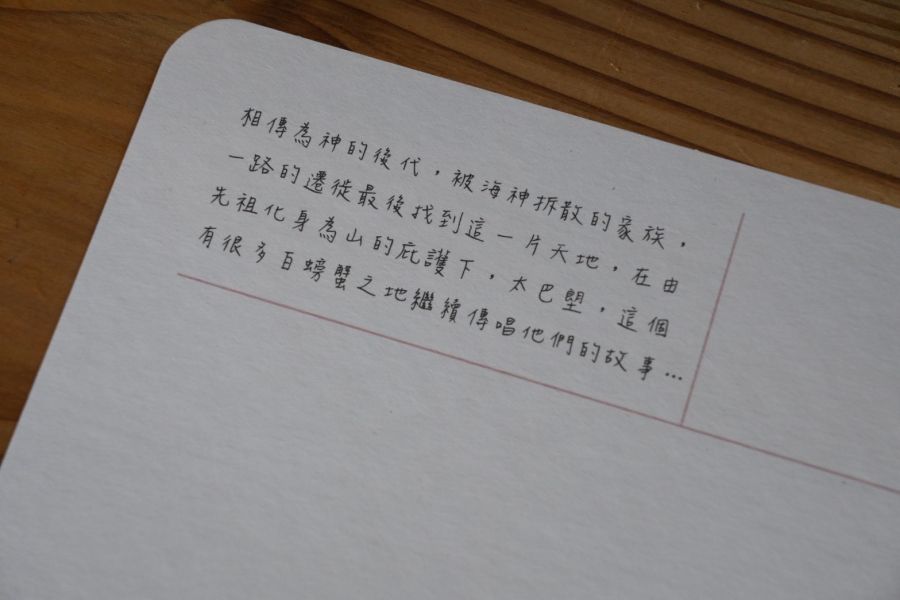 相傳為神的後代，被海神拆散的家族，
一路的遷徙最後找到這一片天地，在由
先祖化身為山的庇護下，太巴塱，這個
有很多白螃蟹之地繼續傳唱他們的故事…